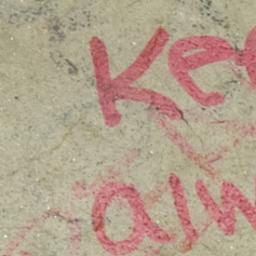 Kee
alw